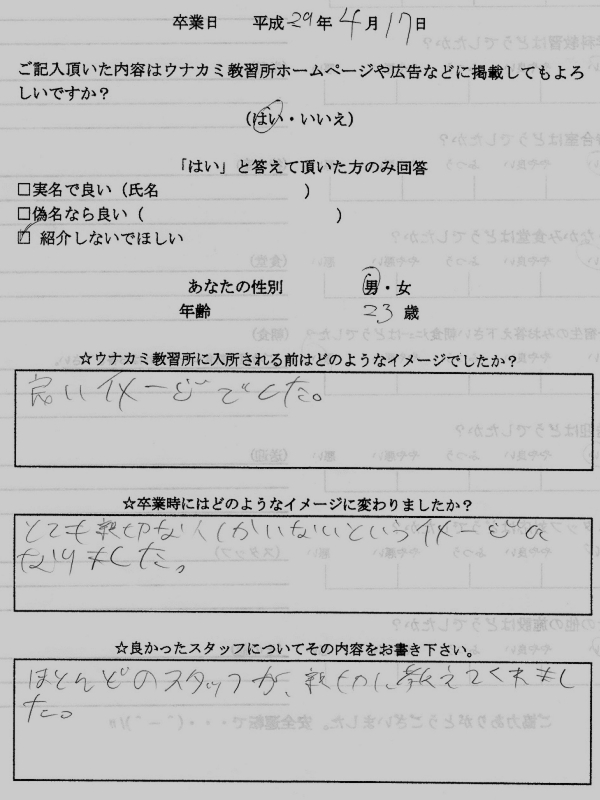 卒業日 平成29年4月17日
ご記入頂いた内容はウナカミ教習所ホームページや広告などに掲載してもよろ
しいですか？
（はい・いいえ）
「はい」と答えて頂いた方のみ回答
□実名で良い（氏名 ）
□偽名なら良い（ ）
☑ 紹介しないでほしい
あなたの性別 男・女
年齢 23 歳
☆ウナカミ教習所に入所される前はどのようなイメージでしたか？
良いイメージでした。
☆卒業時にはどのようなイメージに変わりましたか？
とても親切な人しかいないというイメージに
なりました。
☆良かったスタッフについてその内容をお書き下さい。
ほとんどのスタッフが、親切に教えてくれまし
た。